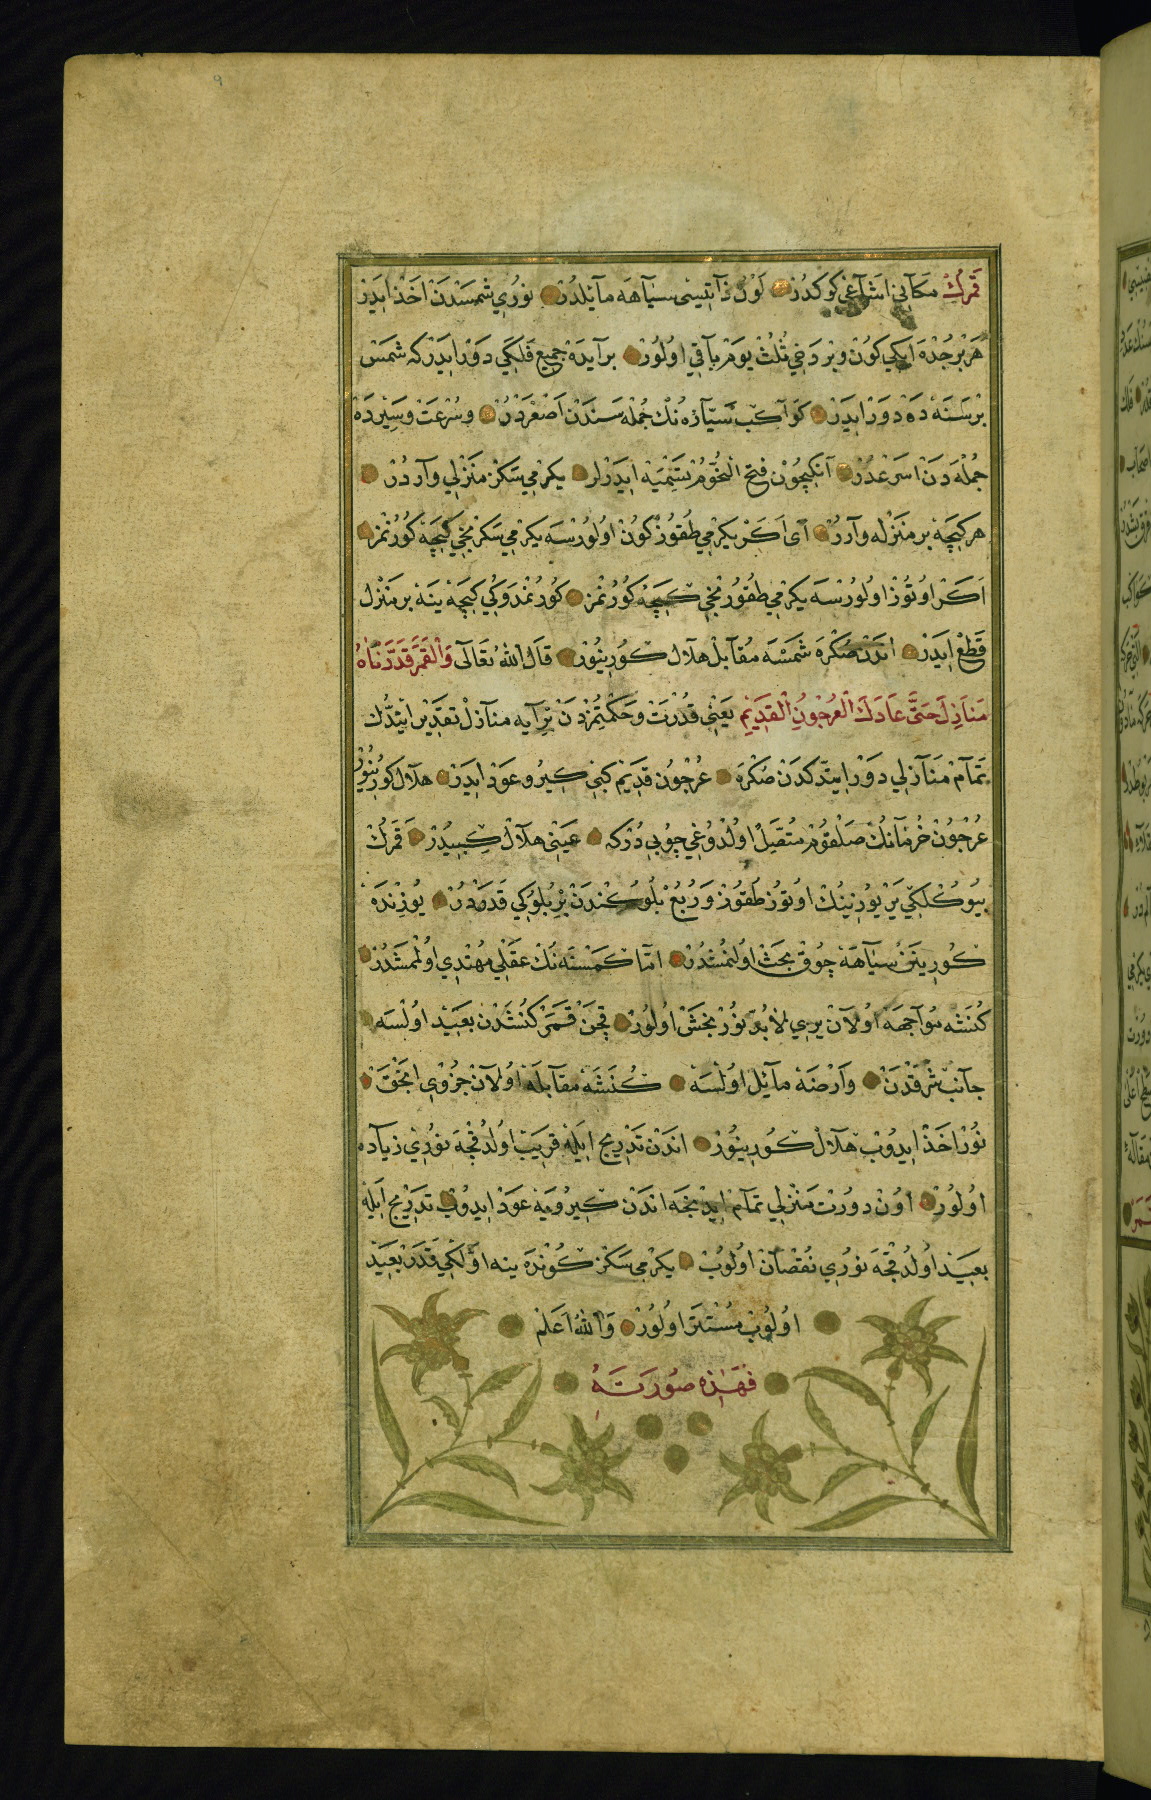 قمرك مكاني اشاغي كوكدر لون ذاتيسي سياهه مايلدر نوري شمسدن اخذ ايدر
هر برجده ايكي كون و بر دخي ثلث يوم باقي اولور بر آيده جميع فلكي دور ايدر كه شمس
بر سنه ده دور ايدر كواكب سياره نك جمله سندن اصغردر و سرعت و سيرده
جمله دن اسرعدر آنكيچون فتح النجوم تسميه ايدرلر يكرمي سكز منزلي واردر
هر كيجه بر منزله وارر آى اكر يكرمي طقوز كون اولورسه يكرمي سكزنجي كيجه كورنمز
اكر اوتوز اولورسه يكرمي طقوزنجي كيجه كورنمز كورنمدوكي كيجه ينه بر منزل
قطع ايدر اندن صكره شمسه مقابل هلال كورينور قال الله تعالى والقمر قدرناه
منازل حتى عاد كالعرجون القديم يعني قدرت و حكمتمزدن بر آيه منازل تقدير ايتدك
تمام منازلي دور ايتدكدن صكره عرجون قديم كبي كيرو عود ايدر هلال كورينور
عرجون خرمانك صلقومي متصل اولدوغي چوبي دركه عيني هلال كبيدر قمرك
بيوكلكي ير يوزينك اوتوز طقوز و ربع بلوكندن بر بلوكي قدردر يوزنده
كورينن سياهه چوق بحث اولنمشدر اما كمسنه نك عقلي مهتدي اولممشدر
كنشه مواجهه اولان يري لابد نور بخش اولور قچن قمر كنشدن بعيد اولسه
جانب شرقدن و ارضه مايل اولسه كنشه مقابله اولان جزؤي انجق
نور اخذ ايدوب هلال كورينور اندن تدريج ايله قريب اولدقجه نوري زياده
اولور اون دورت منزلي تمام ايدنجه اندن كيرويه عود ايدوب تدريج ايله
بعيد اولدقجه نوري نقصان اولوب يكرمي سكز كونده ينه اولكي قدر بعيد
اولوب مستتر اولور والله اعلم
فهذه صورته